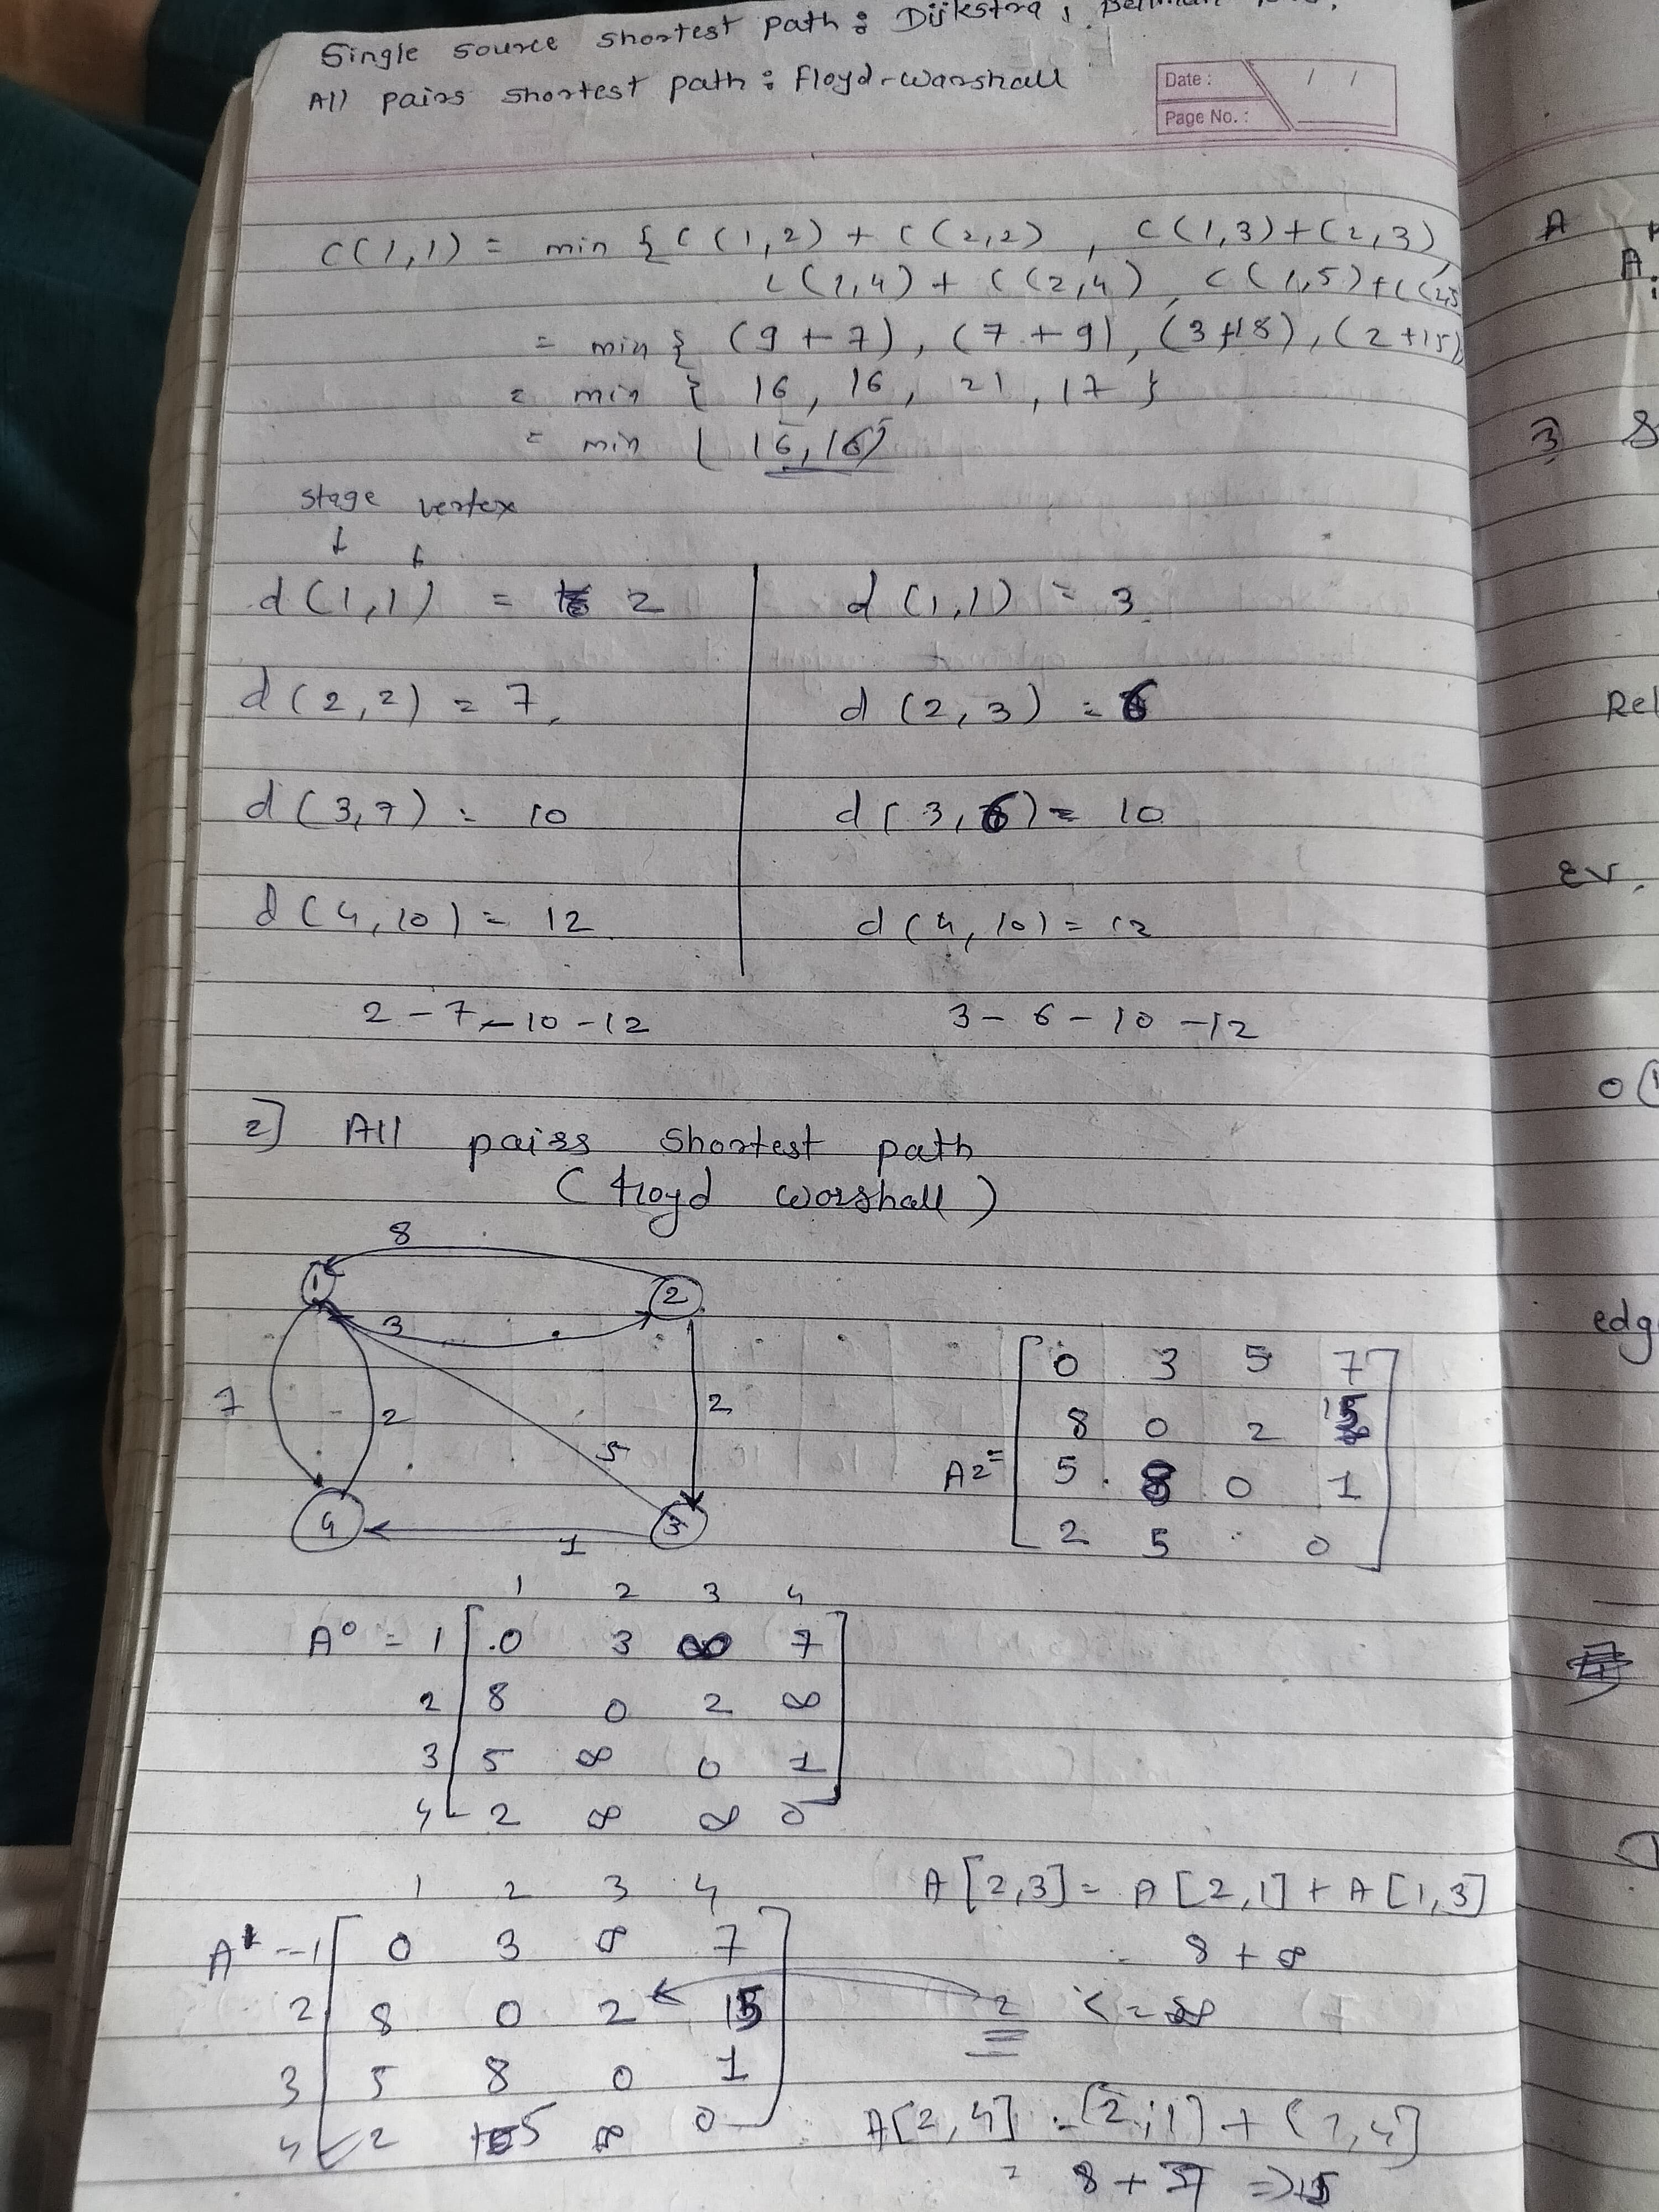 Single source shortest path : Dijkstra,
All pairs shortest path : Floyd-Warshall
Date : / /
Page No. :
C(1,1) = min { C(1,2) + C(2,2) , C(1,3)+(2,3)
C(1,4) + C(2,4) , C(1,5)+C(2,5
= min { (9+7), (7+9), (3+18), (2+15)
= min { 16, 16, 21, 17 }
= min { 16, 16}
stage vertex
↓ ↓
d(1,1) = 2 d(1,1) = 3
d(2,2) = 7 d(2,3) = 6
d(3,7) = 10 d(3,6) = 10
d(4,10) = 12 d(4,10) = 12
2-7-10-12 3-6-10-12
2] All pairs shortest path
(floyd worshall)
8
1 2
3
7 2 5 2
4 3
1
A2=
0 3 5 7
8 0 2 15
5 8 0 1
2 5 0
1 2 3 4
A⁰ = 1 0 3 ∞ 7
2 8 0 2 ∞
3 5 ∞ 0 1
4 2 ∞ ∞ 0
1 2 3 4
A¹ - 1 0 3 ∞ 7
2 8 0 2 15
3 5 8 0 1
4 2 5 ∞ 0
A[2,3] = A[2,1] + A[1,3]
= 8 + ∞
2 < = ∞
A[2,4] = [2,1] + (1,4]
= 8 + 7 => 15
A
3) S
Rel
Ev.
edg